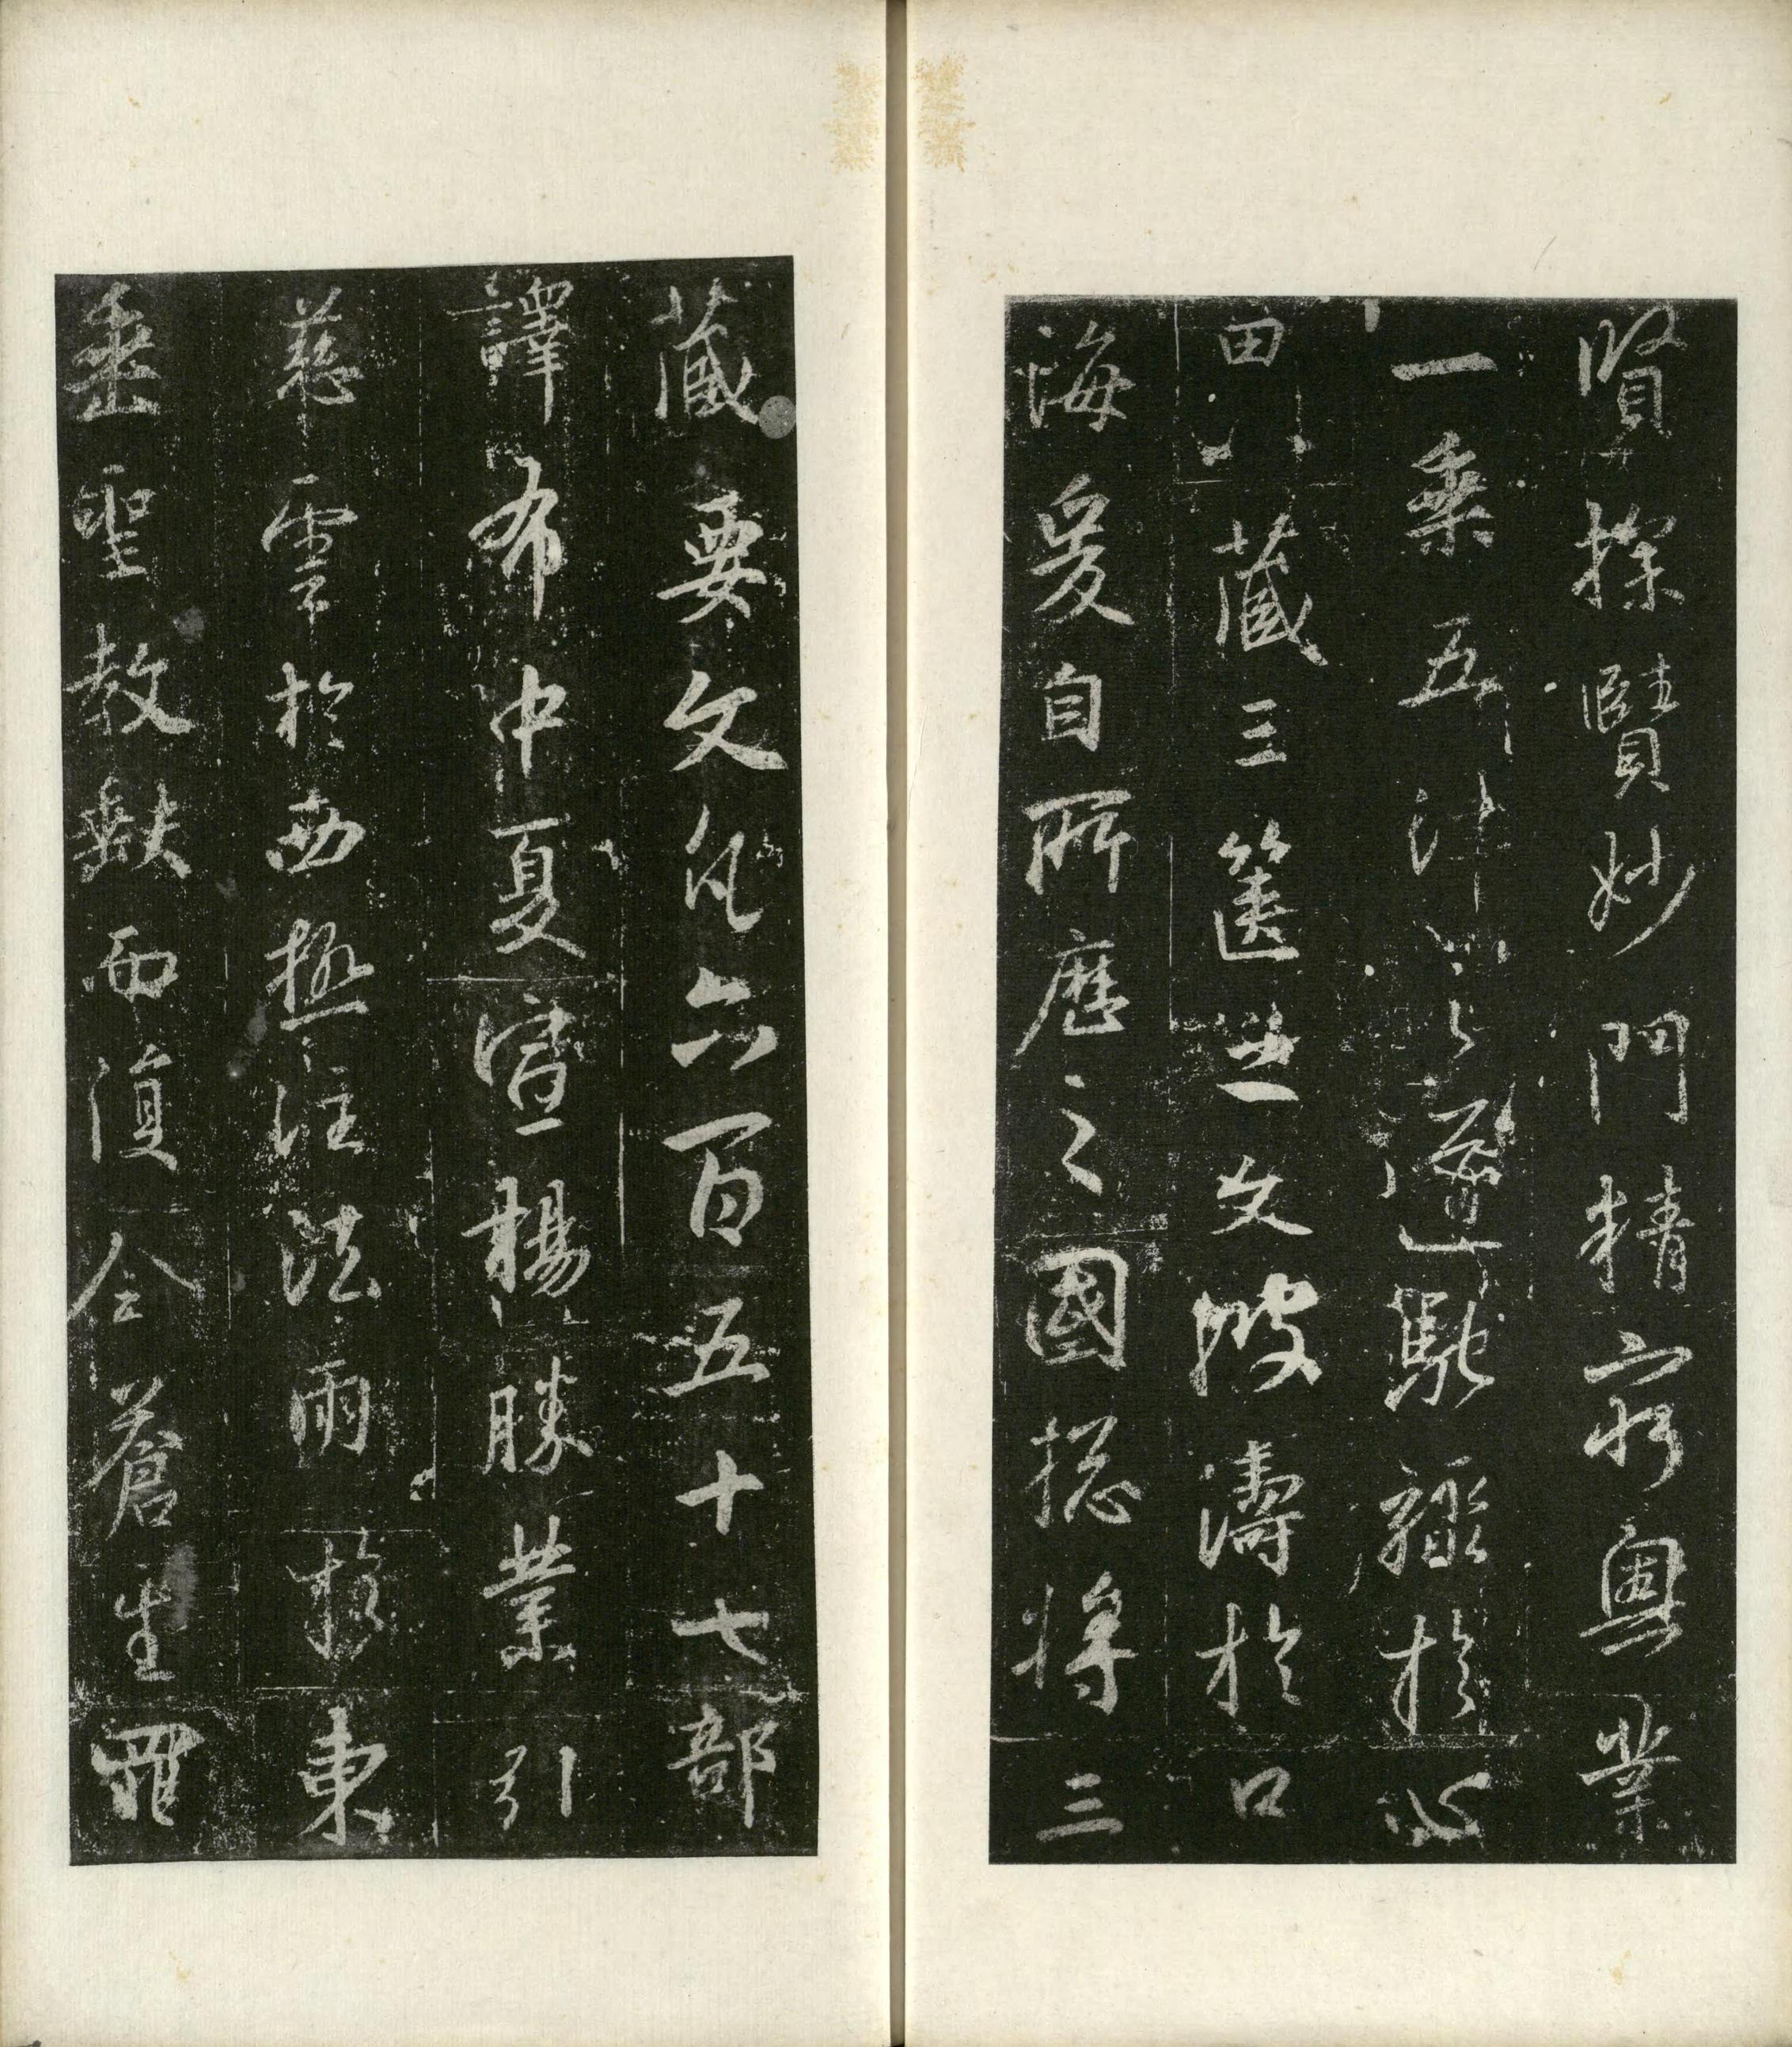 賢探賾妙門精窮奧業
一乘五律之道馳驟於心
田八藏三篋之文波濤於口
海爰自所歷之國總將三
藏要文凡六百五十七部
譯布中夏宣揚勝業引
慈雲於西極注法雨於東
垂聖教缺而復全蒼生罪